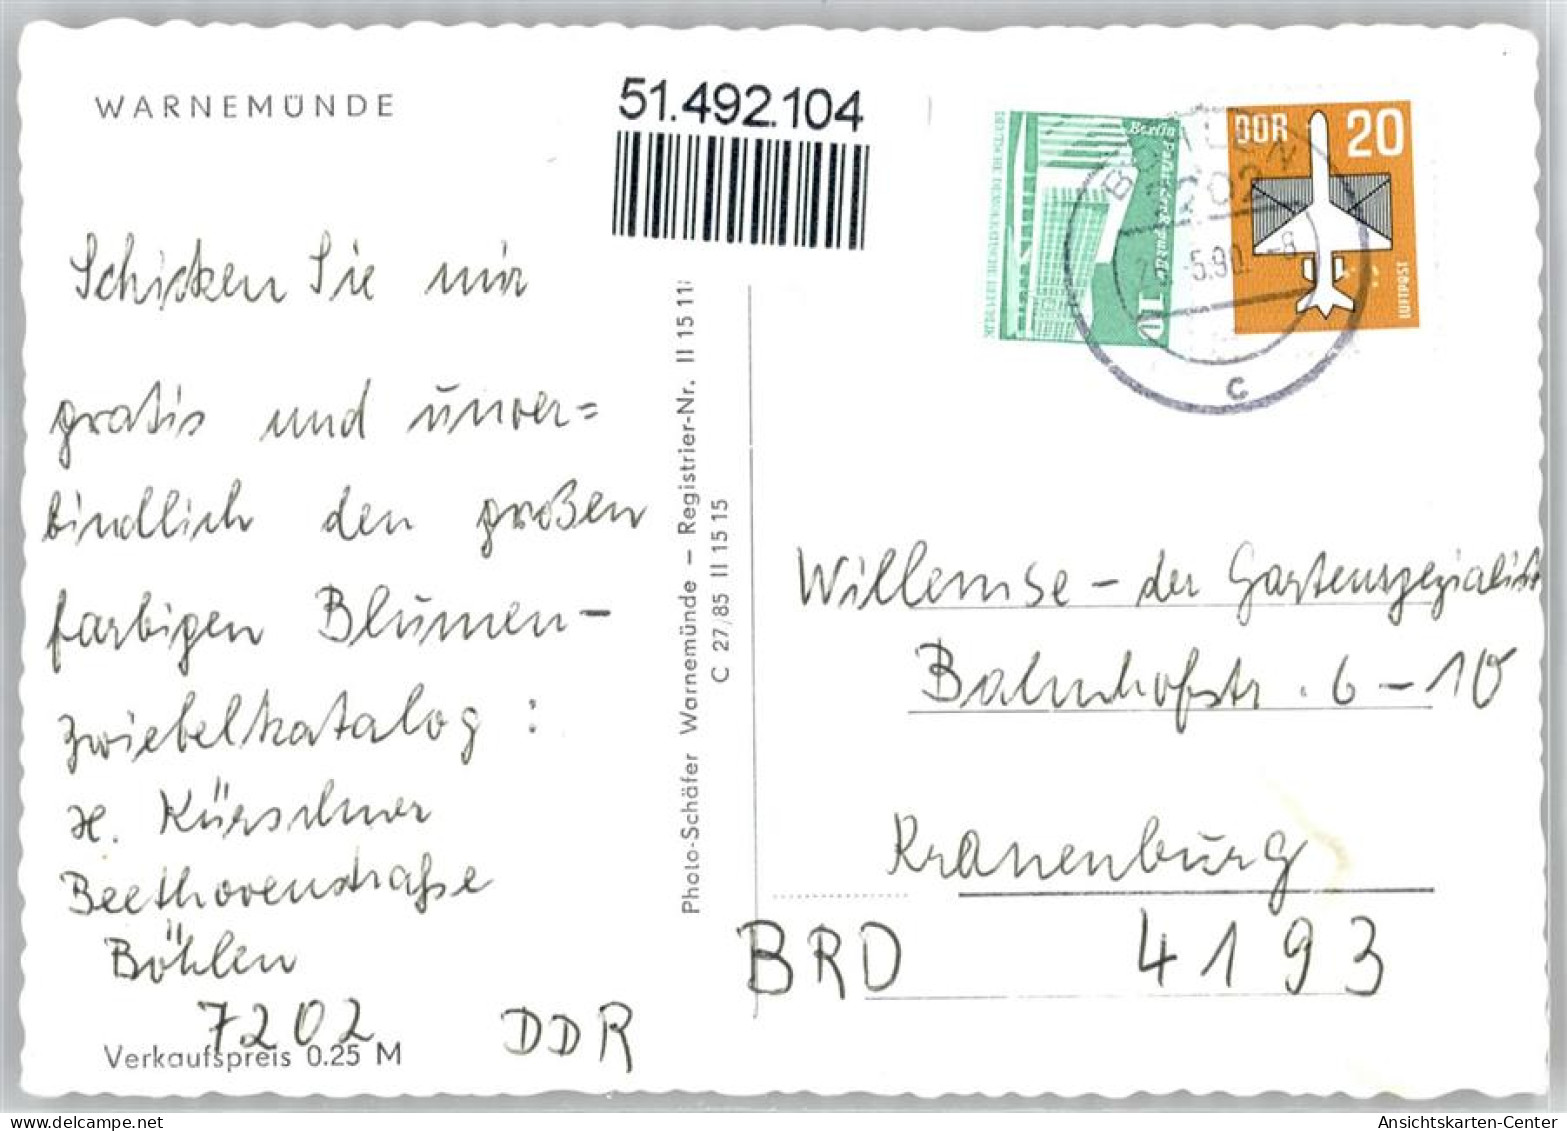 WARNEMÜNDE
51.492.104
Schicken Sie mir
gratis und unver=
bindlich den großen
farbigen Blumen-
zwiebelkatalog :
H. Kürschner
Beethovenstraße
Böhlen
7202 DDR
Verkaufspreis 0.25 M
Photo-Schäfer Warnemünde – Registrier-Nr. II 15 11
C 27/85 II 15 15
DEUTSCHE DEMOKRATISCHE REPUBLIK
Berlin Palast der Republik
10
DDR 20
LUFTPOST
BÖHLEN
7202
-5.90.-8
c
Willemse – der Gartenspezialist
Bahnhofstr. 6 – 10
Kranenburg
BRD 4193
Ansichtskarten-Center